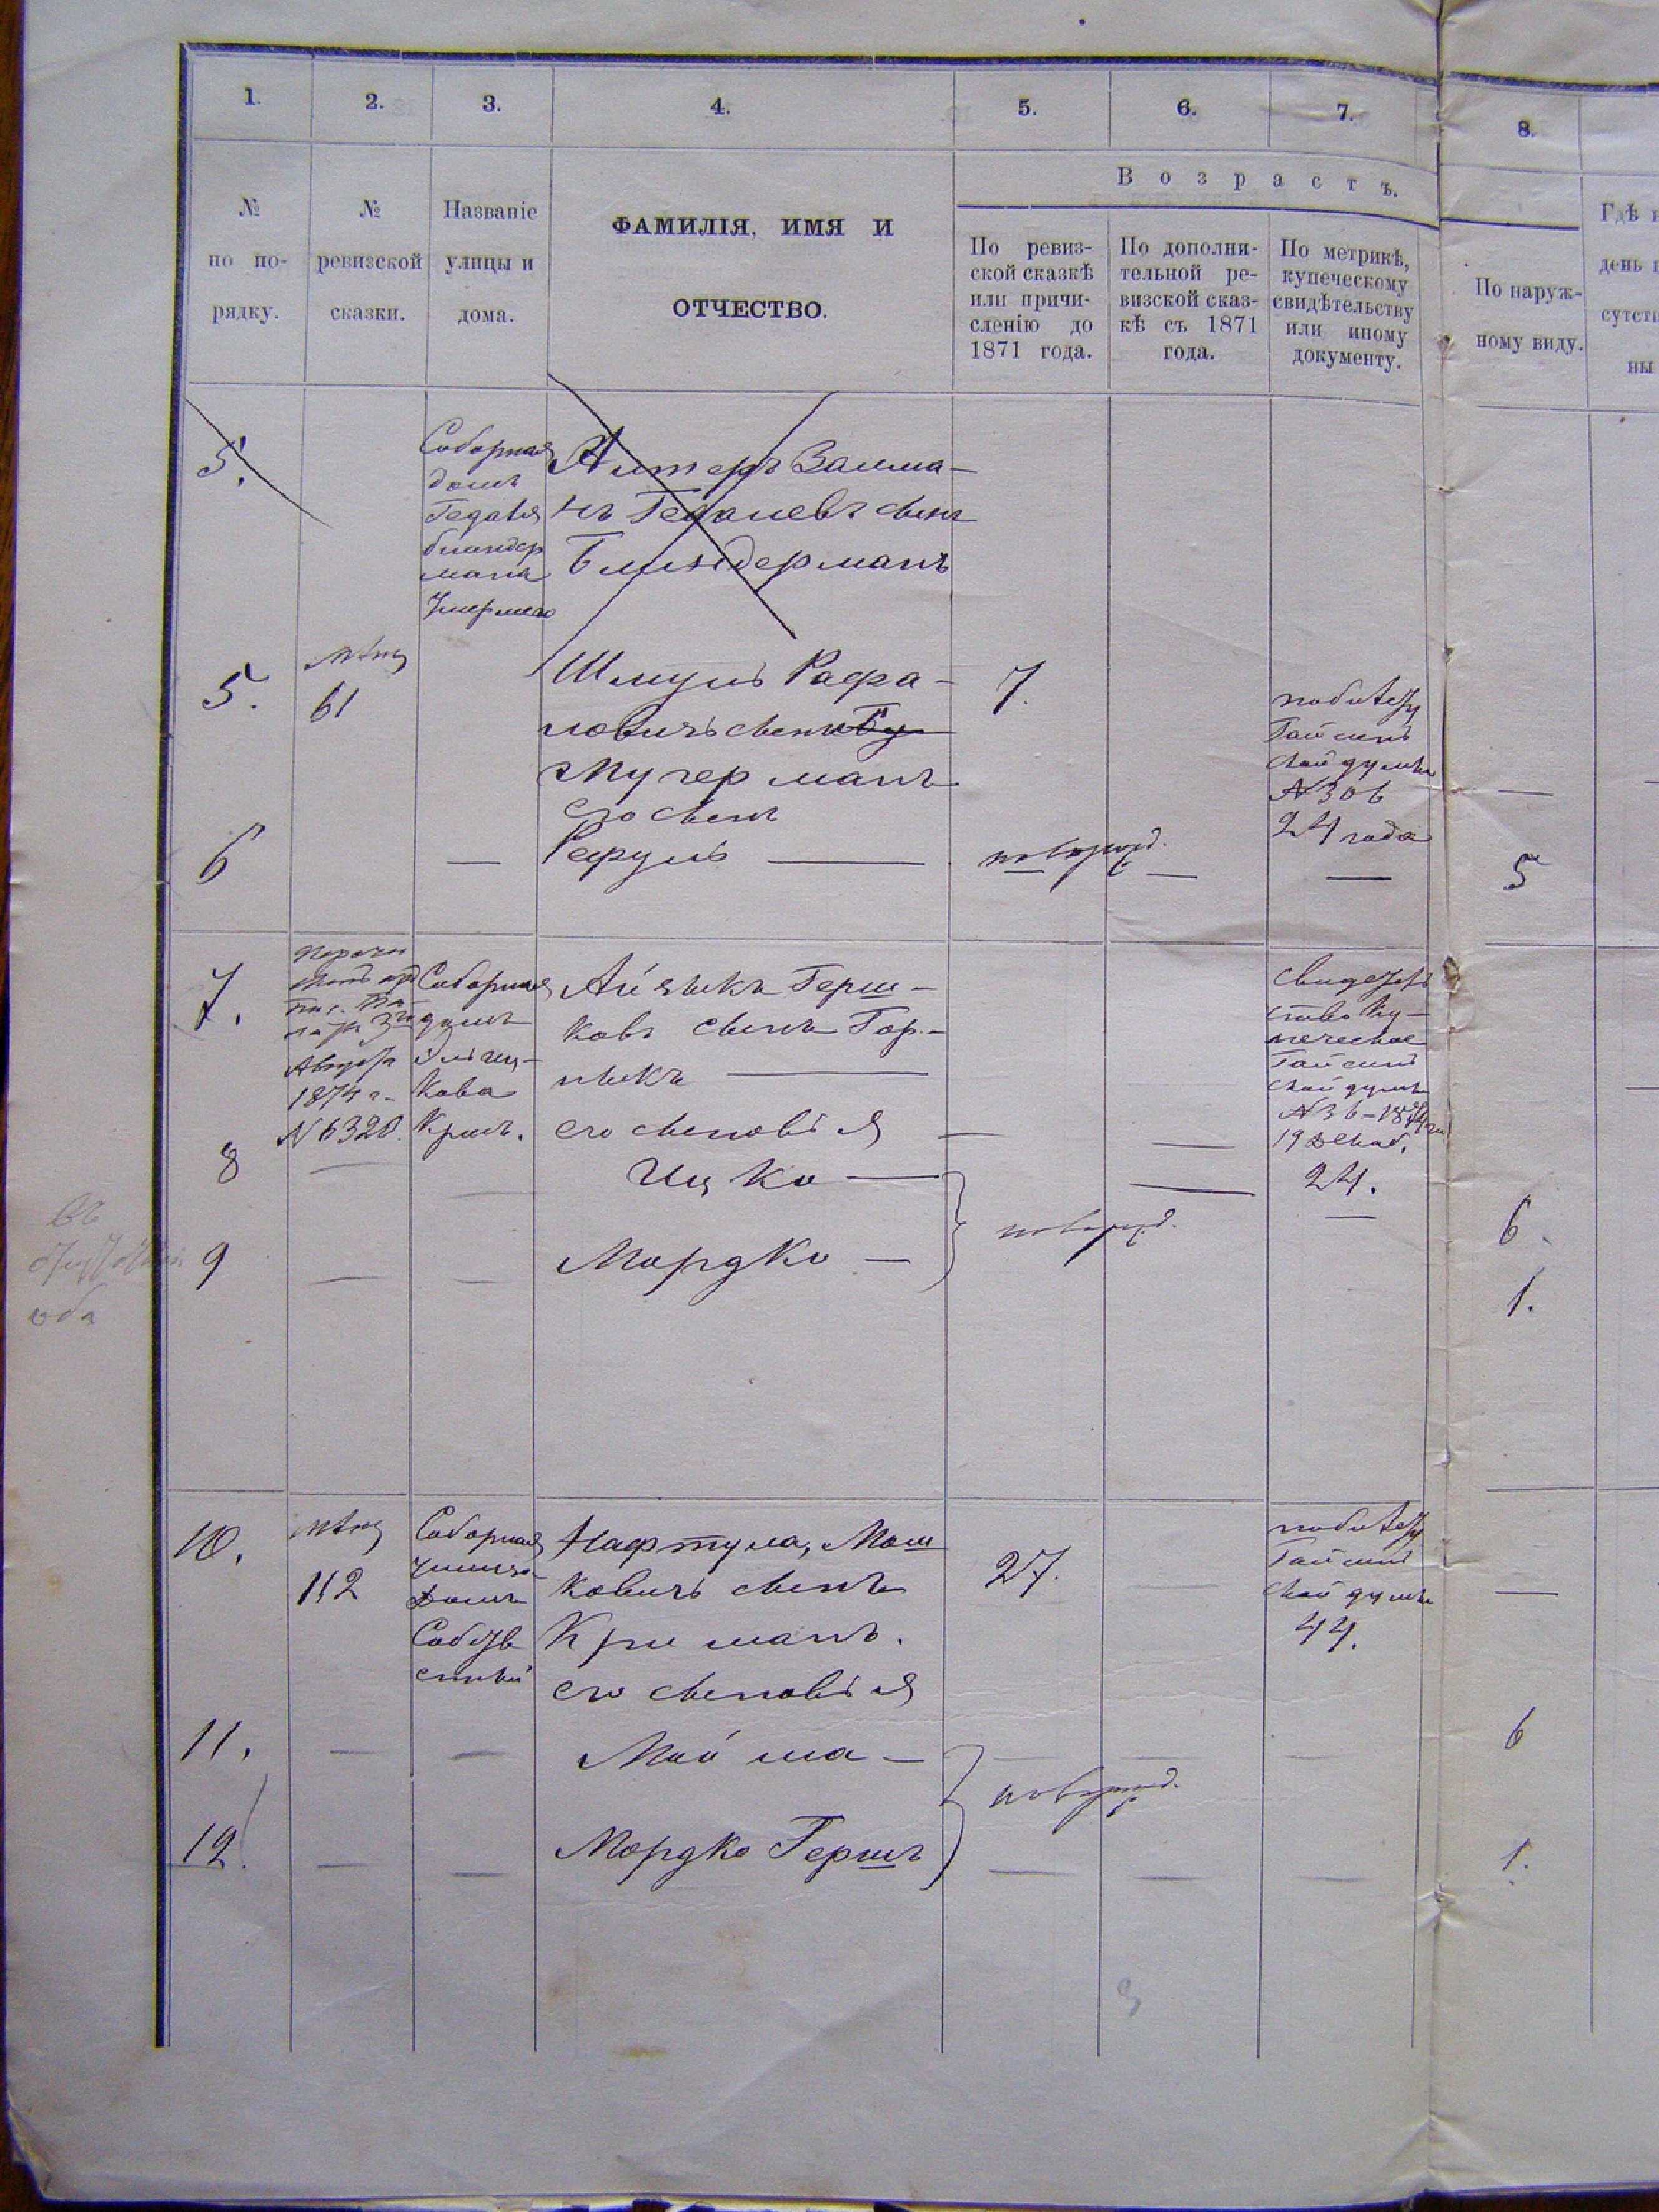 1. 2. 3. 4. 5. 6. 7. 8.
№
по по-
рядку.
№
ревизской
сказки.
Названіе
улицы и
дома.
ФАМИЛІЯ, ИМЯ И
ОТЧЕСТВО.
Возрастъ.
По ревиз-
ской сказкѣ
или причи-
сленію до
1871 года.
По дополни-
тельной ре-
визской сказ-
кѣ съ 1871
года.
По метрикѣ,
купеческому
свидѣтельству
или иному
документу.
По наруж-
ному виду.
Гдѣ
день
сутст
ны
5.
Соборная
домъ
Гедалья
блиндер
мана
Умерше
Алтеръ Залма-
нъ Гедалевъ сынъ
Блиндерманъ
5.
мѣщ
61
Шмуль Рафа-
ловичъ сынъ
Мучерманъ
его сынъ
7.
по билету
Гайсин
ской думы
№ 306
24 года
6
—
Рафуль —
новорожд.
—
—
5
7.
Августа
1874 г.
№ 6320.
Соборная
домъ
Ицкова
Крим.
Айзыкъ Герш-
ковъ сынъ Гор-
ныкъ —
его сыновья
свидетель
ство Ку-
печеское
Гайсин
ской думы
№ 36 - 1874 г.
19 Декаб.
24.
8
—
—
Ицко —
новорожд.
—
—
6
9
—
—
Мордко —
1.
въ
оба
10.
мѣщ
112
Соборная
улица
Домъ
Собств
енный
Нафтула, Мош
ковичъ сынъ
Криманъ.
его сыновья
27.
—
по билету
Гайсин
ской думы
44.
—
11.
—
—
Мойша —
новорожд.
—
—
—
6
12.
—
—
Мордко Гершъ
—
—
—
1.